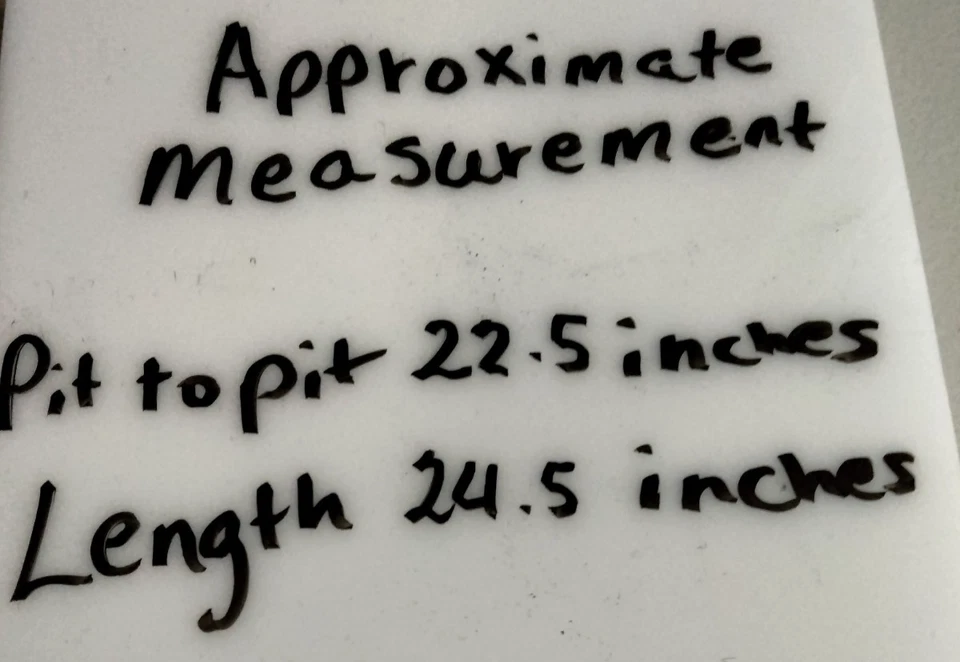 Approximate
measurement
Pit to pit 22.5 inches
Length 24.5 inches